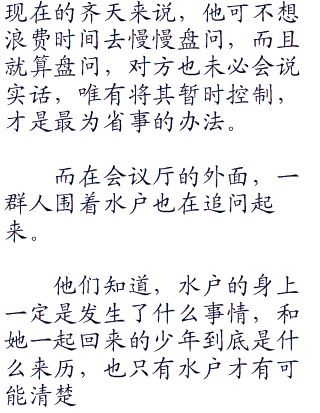 现在的齐天来说，他可不想
浪费时间去慢慢盘问，而且
就算盘问，对方也未必会说
实话，唯有将其暂时控制，
才是最为省事的办法。
而在会议厅的外面，一
群人围着水户也在追问起
来。
他们知道，水户的身上
一定是发生了什么事情，和
她一起回来的少年到底是什
么来历，也只有水户才有可
能清楚